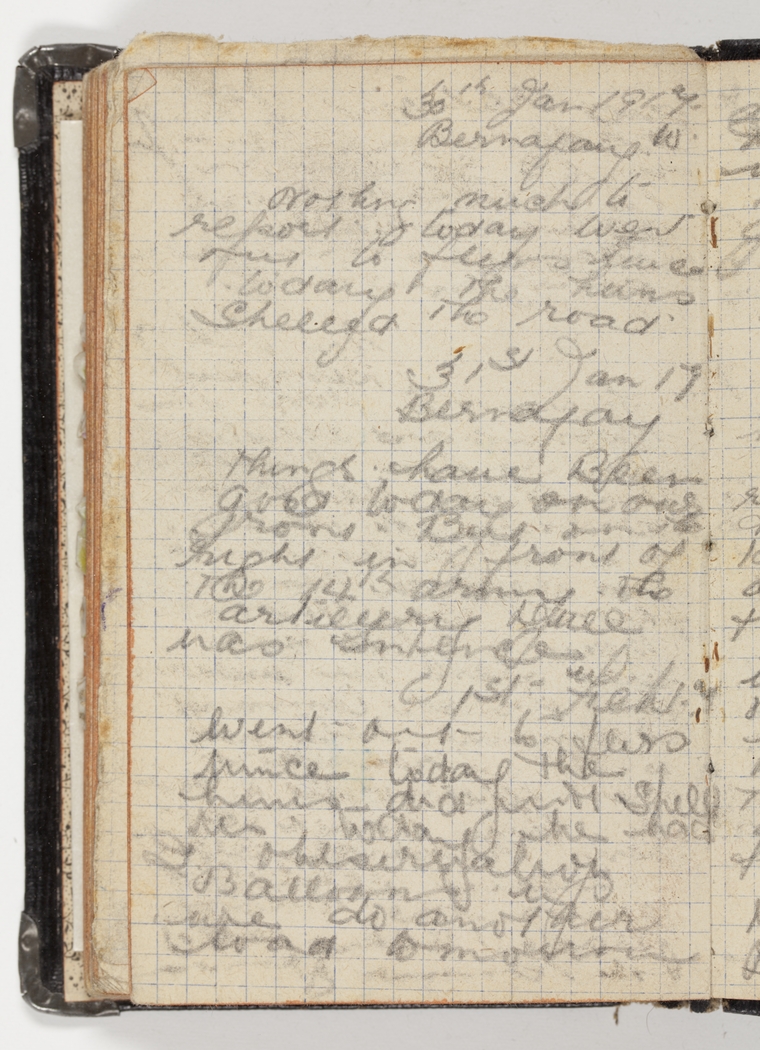 30th Jan 1917.
Bernafay W
Nothing much to
report today went
to flers
today the huns
Shelled the road
31st Jan 17
Bernafay
things have Been
good today on our
front. But on the
night in front of
the 14th army the
artillery
was
1st Feb
Went out to flers
today the
huns did not Shell
today he had
observation
Balloons up
we do another
load tomorrow